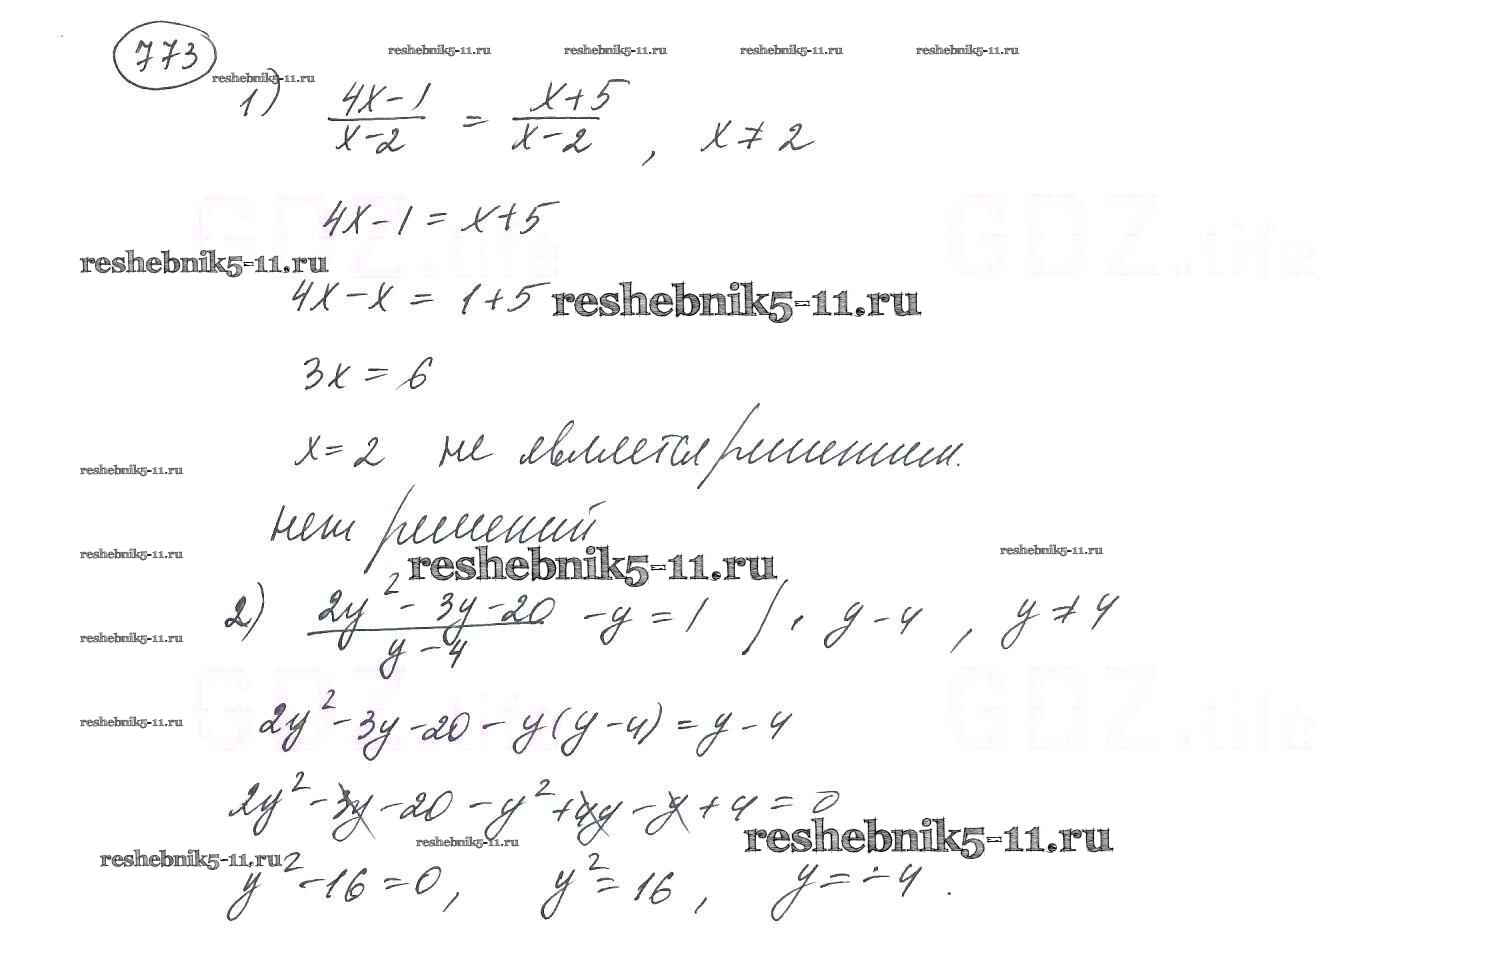 773
reshebnik5-11.ru reshebnik5-11.ru reshebnik5-11.ru reshebnik5-11.ru
reshebnik5-11.ru
1) (4x-1)/(x-2) = (x+5)/(x-2), x≠2
GDZ.life GDZ.life
4x-1=x+5
reshebnik5-11.ru
4x-x=1+5 reshebnik5-11.ru
3x=6
x=2 не является решением.
reshebnik5-11.ru
нет решений
reshebnik5-11.ru reshebnik5-11.ru
reshebnik5-11.ru
2) (2y²-3y-20)/(y-4) -y=1 /· y-4, y≠4
reshebnik5-11.ru
GDZ.life GDZ.life
2y²-3y-20-y(y-4)=y-4
reshebnik5-11.ru
2y²-3y-20-y²+4y-y+4=0
reshebnik5-11.ru reshebnik5-11.ru
reshebnik5-11.ru
y²-16=0, y²=16, y=-4.